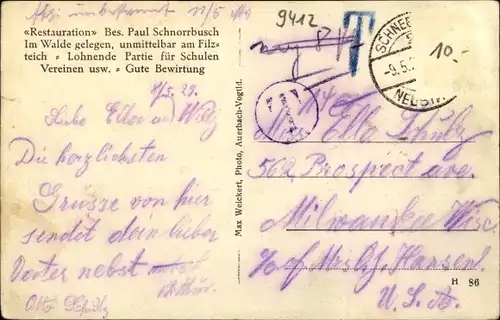 9412
T
10.-
«Restauration» Bes. Paul Schnorrbusch
Im Walde gelegen, unmittelbar am Filz-
teich - Lohnende Partie für Schulen
Vereinen usw. - Gute Bewirtung
SCHNEEB
-9.5.
NEUST
8/5. 29.
Liebe Ella
Die herzlichsten
Grüsse von hier
sendet dein lieber
Vater nebst
Otto Schulz
Max Weickert, Photo, Auerbach-Vogtld.
Miss Ella Schulz
562 Prospect ave.
Milwaukee Wisc
c/of Mrs Hansen
U. S. A.
H 86